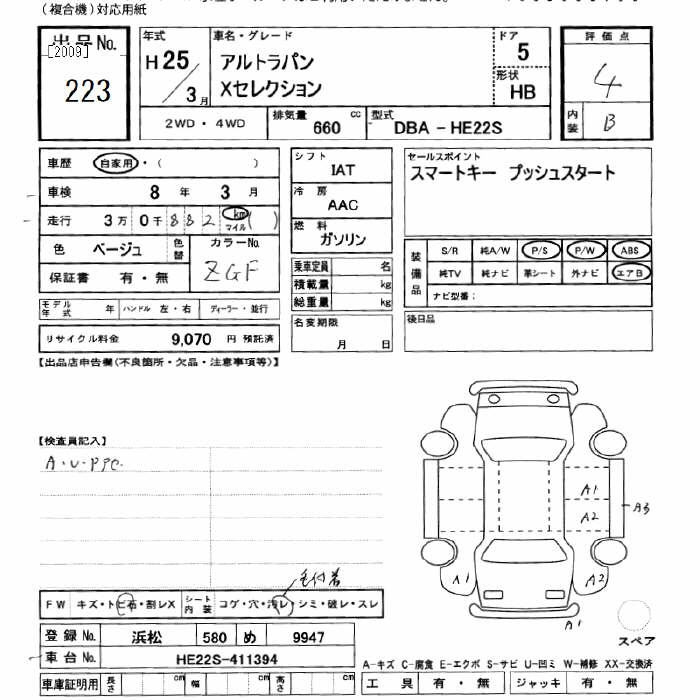 (複合機)対応用紙
出品No.
[2009]
223
年式
H25/3月
車名・グレード
アルトラパン
Xセレクション
ドア
5
形状
HB
評価点
4
内装
B
2WD・4WD
排気量
660 cc
型式
DBA-HE22S
車歴 自家用・( )
車検 8年 3月
走行 3万0千882 km マイル ( )
色 ベージュ 色替
カラーNo.
ZGF
保証書 有・無
モデル年式 年 ハンドル 左・右 ディーラー・並行
リサイクル料金 9,070 円 預託済
シフト
IAT
冷房
AAC
燃料
ガソリン
乗車定員 名
積載量 kg
総重量 kg
名変期限
月 日
セールスポイント
スマートキー プッシュスタート
装備品
S/R 純A/W P/S P/W ABS
純TV 純ナビ 革シート 外ナビ エアB
ナビ型番:
後日品
【出品店申告欄(不良箇所・欠品・注意事項等)】
【検査員記入】
A・U・PPC.
毛付着
FW キズ・トビ石・割レX シート内装 コゲ・穴・汚レ・シミ・破レ・スレ
A1
A2
A3
A1
A2
A1
スペア
登録No. 浜松 580 め 9947
車台No. HE22S-411394
車庫証明用 長さ cm 幅 cm 高さ cm
A-キズ C-腐食 E-エクボ S-サビ U-凹ミ W-補修 XX-交換済
工具 有・無 ジャッキ 有・無